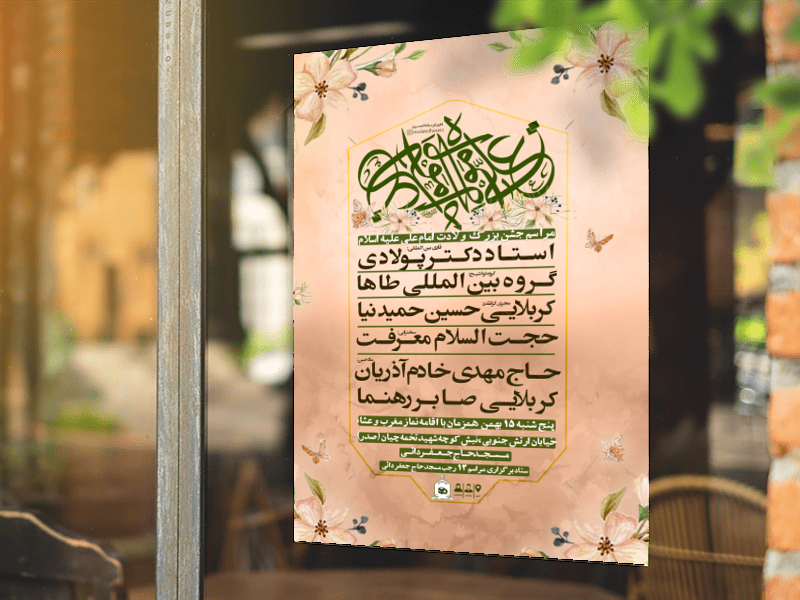 مراسم جشن بزرگ ولادت امام علی علیه اسلام
قاری بین المللی:
استاد دکتر پولادی
گروه تواشیح:
گروه بین المللی طاها
مجری گرانقدر:
کربلایی حسین حمیدنیا
سخنرانی:
حجت السلام معرفت
مداحین:
حاج مهدی خادم آذریان
کربلایی صابر رهنما
پنج شنبه ۱۵ بهمن همزمان با اقامه نماز مغرب و عشا
خیابان ارتش جنوبی، نبش کوچه شهید نخمه چیان (صدر)
مسجد حاج جعفردائی
ستاد برگزاری مراسم ۱۳ رجب مسجد حاج جعفردائی